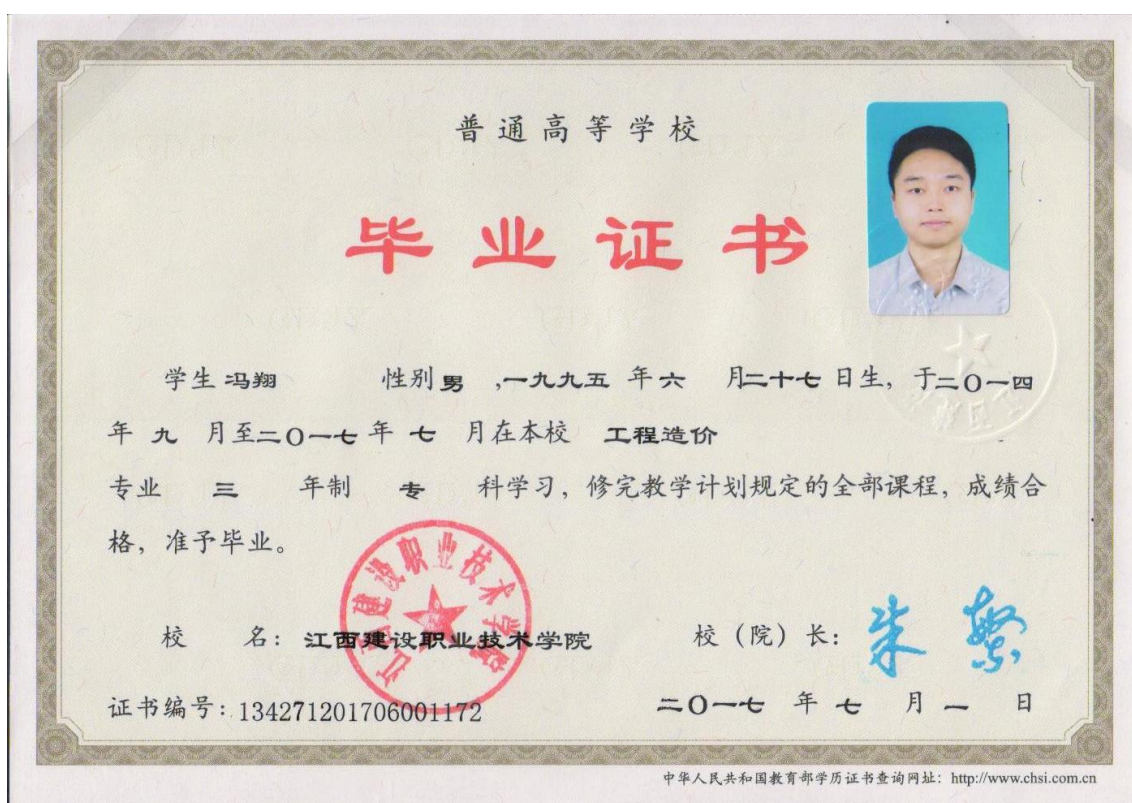 普通高等学校
毕业证书
学生 冯翔 性别 男 ,一九九五 年 六 月二十七 日生，于二〇一四
年 九 月至二〇一七 年 七 月在本校 工程造价
专业 三 年制 专 科学习，修完教学计划规定的全部课程，成绩合
格，准予毕业。
江西建设职业技术学院
校 名：江西建设职业技术学院 校（院）长：
证书编号：134271201706001172 二〇一七 年 七 月 一 日
中华人民共和国教育部学历证书查询网址：http://www.chsi.com.cn